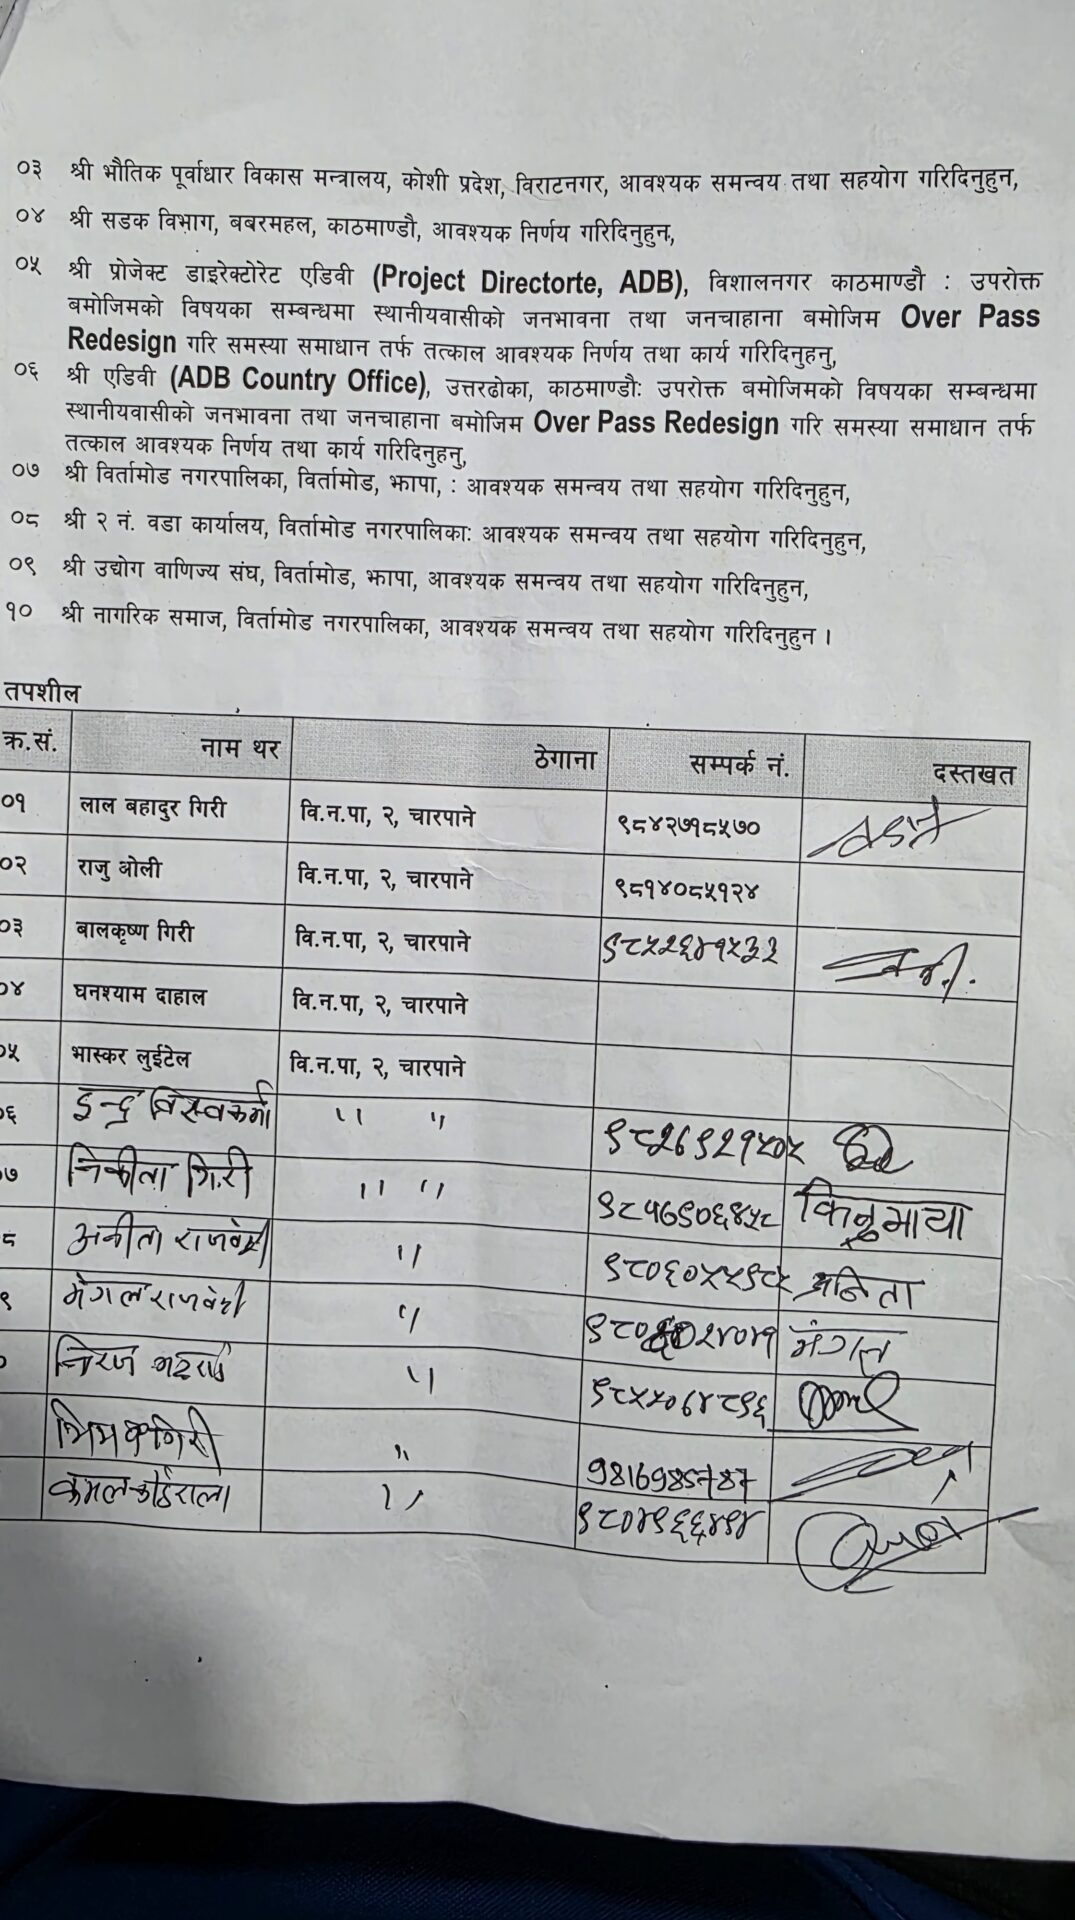 ०३ श्री भौतिक पूर्वाधार विकास मन्त्रालय, कोशी प्रदेश, विराटनगर, आवश्यक समन्वय तथा सहयोग गरिदिनुहुन,
०४ श्री सडक विभाग, बबरमहल, काठमाण्डौ, आवश्यक निर्णय गरिदिनुहुन,
०५ श्री प्रोजेक्ट डाइरेक्टोरेट एडिवी (Project Directorte, ADB), विशालनगर काठमाण्डौ : उपरोक्त
बमोजिमको विषयका सम्बन्धमा स्थानीयवासीको जनभावना तथा जनचाहाना बमोजिम Over Pass
Redesign गरि समस्या समाधान तर्फ तत्काल आवश्यक निर्णय तथा कार्य गरिदिनुहनु,
०६ श्री एडिवी (ADB Country Office), उत्तरढोका, काठमाण्डौः उपरोक्त बमोजिमको विषयका सम्बन्धमा
स्थानीयवासीको जनभावना तथा जनचाहाना बमोजिम Over Pass Redesign गरि समस्या समाधान तर्फ
तत्काल आवश्यक निर्णय तथा कार्य गरिदिनुहनु,
०७ श्री विर्तामोड नगरपालिका, विर्तामोड, झापा, : आवश्यक समन्वय तथा सहयोग गरिदिनुहुन,
०८ श्री २ नं. वडा कार्यालय, विर्तामोड नगरपालिकाः आवश्यक समन्वय तथा सहयोग गरिदिनुहुन,
०९ श्री उद्योग वाणिज्य संघ, विर्तामोड, झापा, आवश्यक समन्वय तथा सहयोग गरिदिनुहुन,
१० श्री नागरिक समाज, विर्तामोड नगरपालिका, आवश्यक समन्वय तथा सहयोग गरिदिनुहुन ।
तपशील
क्र.सं. नाम थर ठेगाना सम्पर्क नं. दस्तखत
०१ लाल बहादुर गिरी वि.न.पा, २, चारपाने ९८४२७१८५७०
०२ राजु ओली वि.न.पा, २, चारपाने ९८१४०८५१२४
०३ बालकृष्ण गिरी वि.न.पा, २, चारपाने ९८५२६४१५३३
०४ घनश्याम दाहाल वि.न.पा, २, चारपाने
०५ भास्कर लुईटेल वि.न.पा, २, चारपाने
०६ इन्द्र विस्वकर्मा " "
०७ निकीता गिरी " " किनुमाया
८ अनीता राजवंशी " अनिता
९ मंगल राजवंशी " मंगल
निरज भट्टराई " ९८५५०७४८९६
गिरी " 9816985787
कमल कोईराला " ९८०४९६६४९४